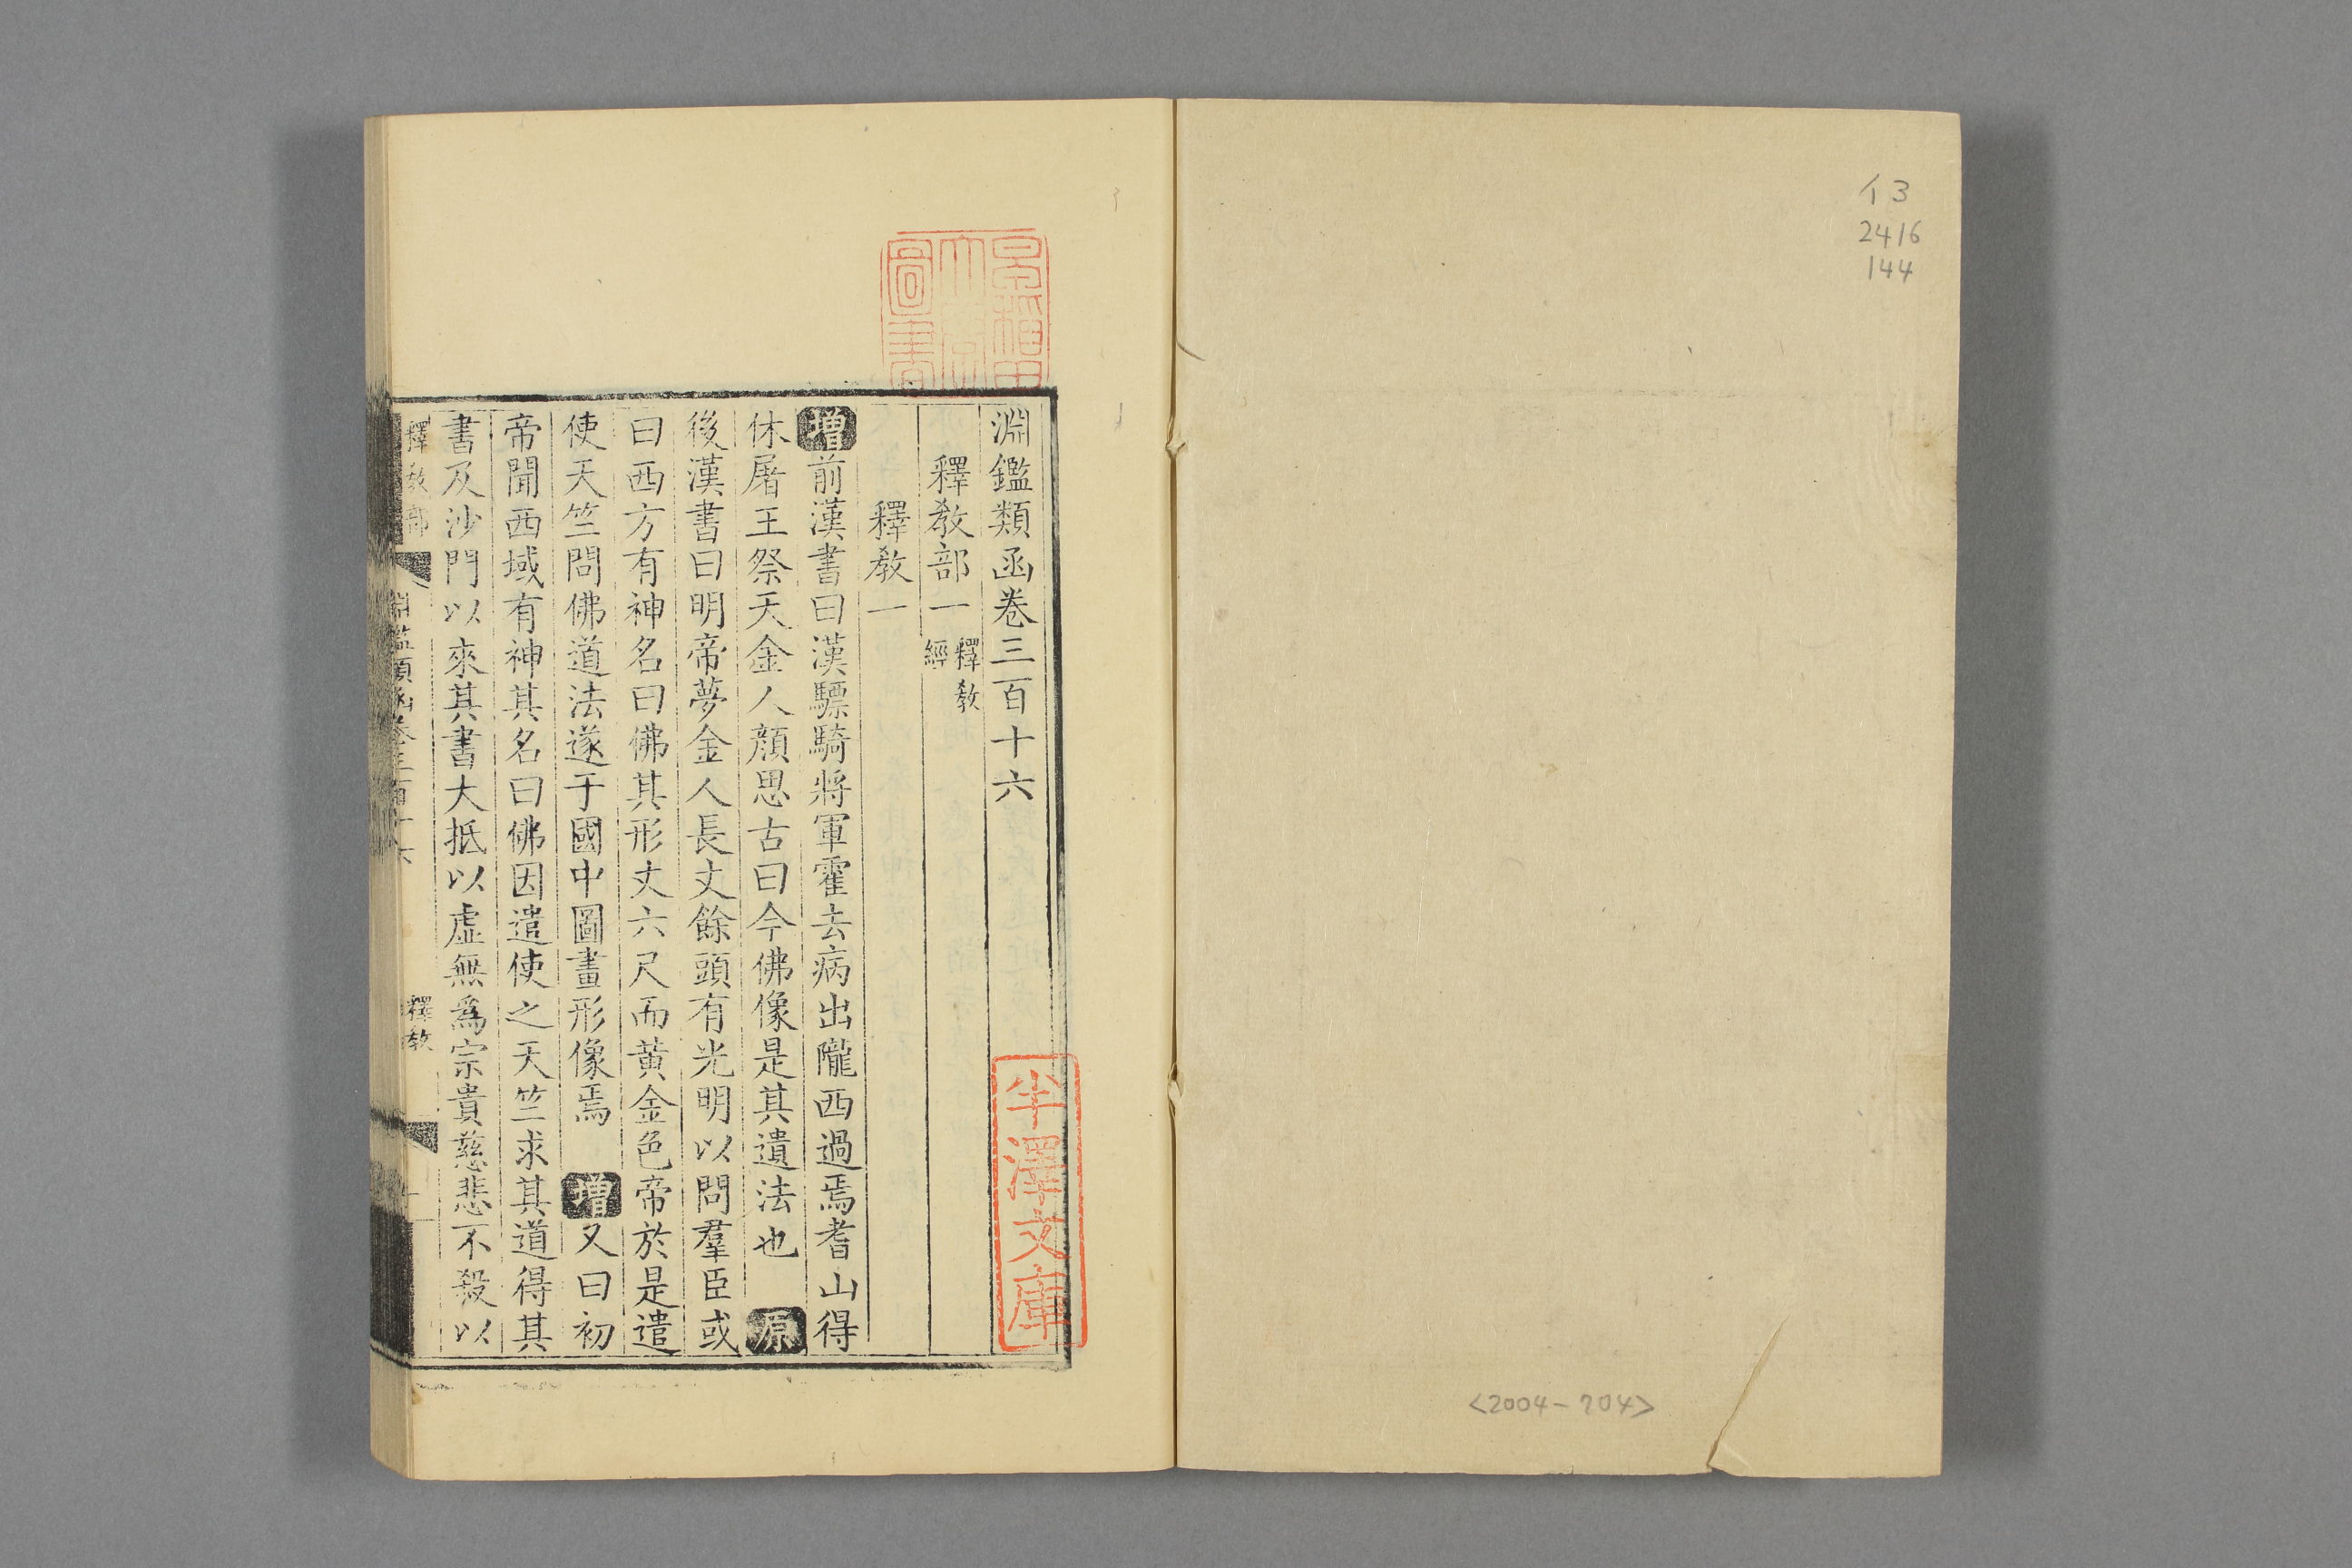 イ3
2416
144
<2004-704>
早稲田
大學
圖書
淵鑑類函卷三百十六
釋教部一 釋教
經
釋教一
增前漢書曰漢驃騎將軍霍去病出隴西過焉耆山得
休屠王祭天金人顔思古曰今佛像是其遺法也 原
後漢書曰明帝夢金人長丈餘頭有光明以問羣臣或
曰西方有神名曰佛其形丈六尺而黄金色帝於是遣
使天竺問佛道法遂于國中圖畫形像焉 增又曰初
帝聞西域有神其名曰佛因遣使之天竺求其道得其
書及沙門以來其書大抵以虛無爲宗貴慈悲不殺以
釋教部 淵鑑類函卷三百十六 釋教 一
半澤文庫